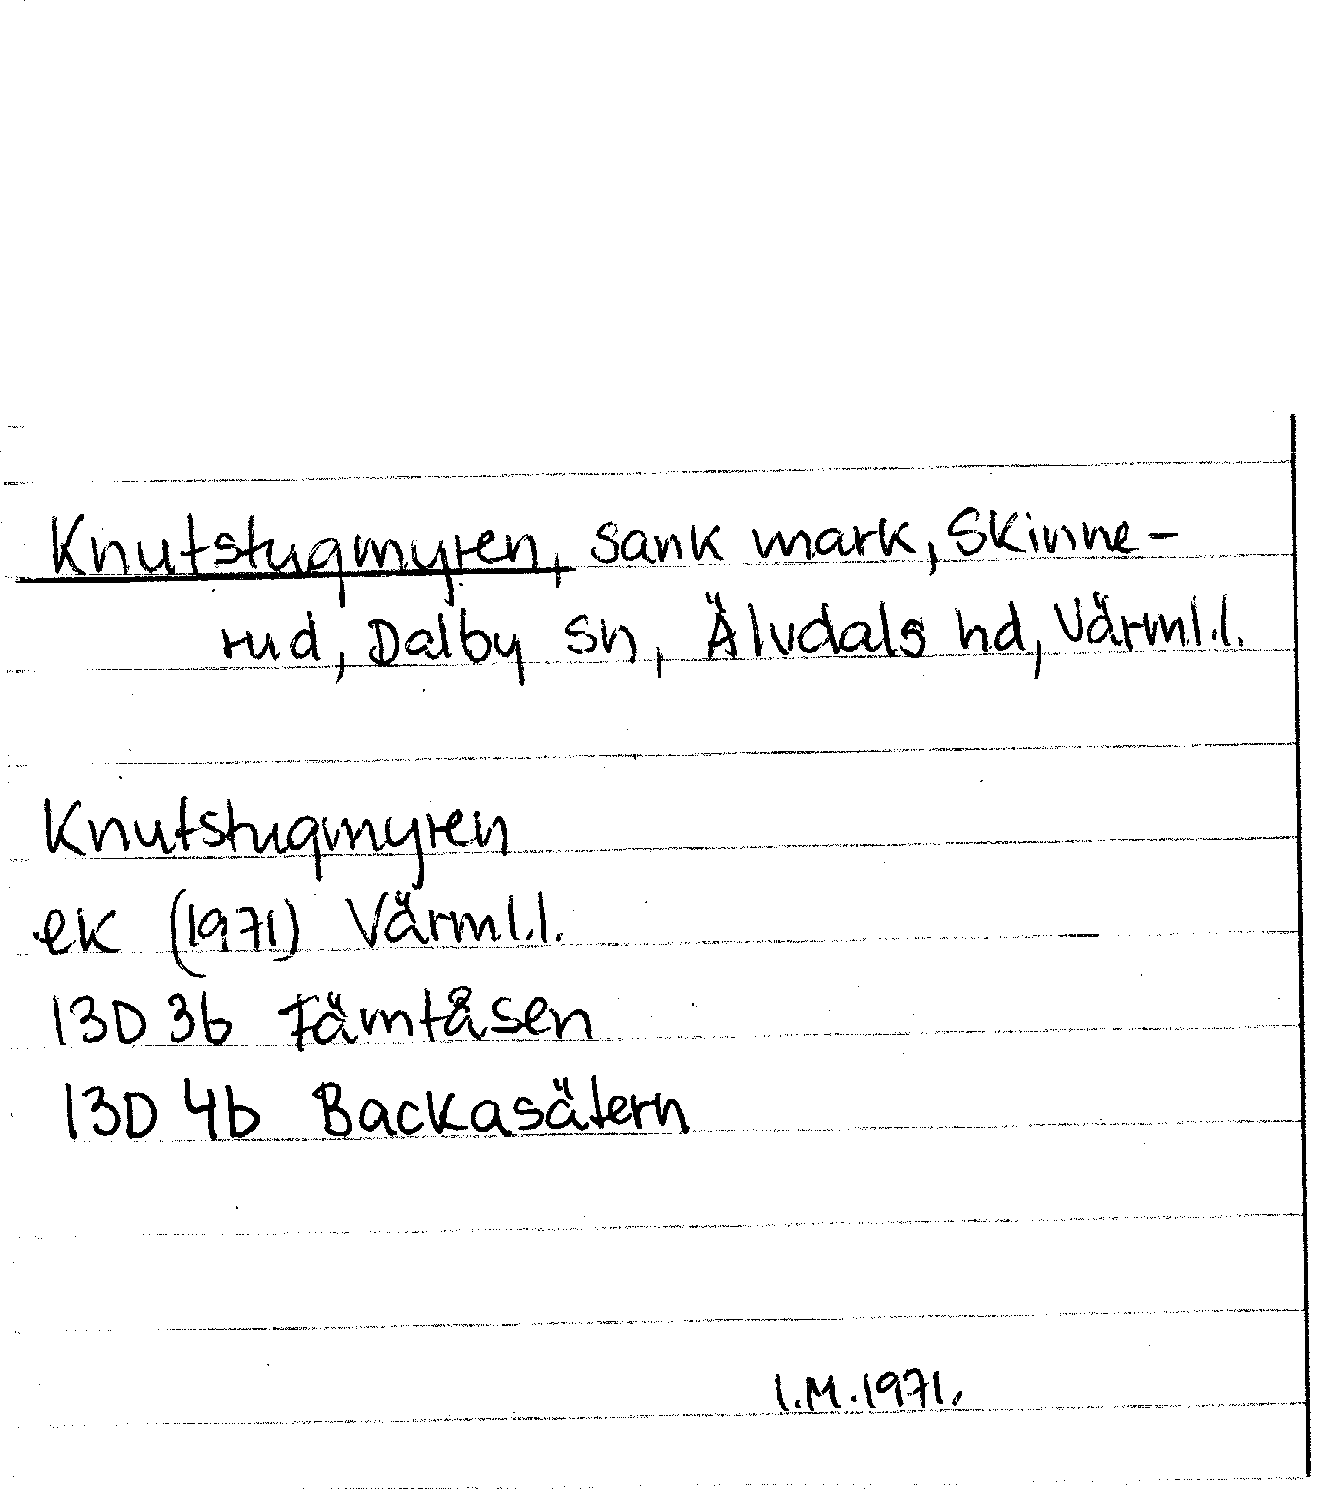 Knutstugmyren, sank mark, Skinne-
rud, Dalby sn, Älvdals hd, Värml.l.
Knutstugmyren
ek (1971) Värml.l.
13D 3b Fämtåsen
13D 4b Backasätern
I.M.1971.